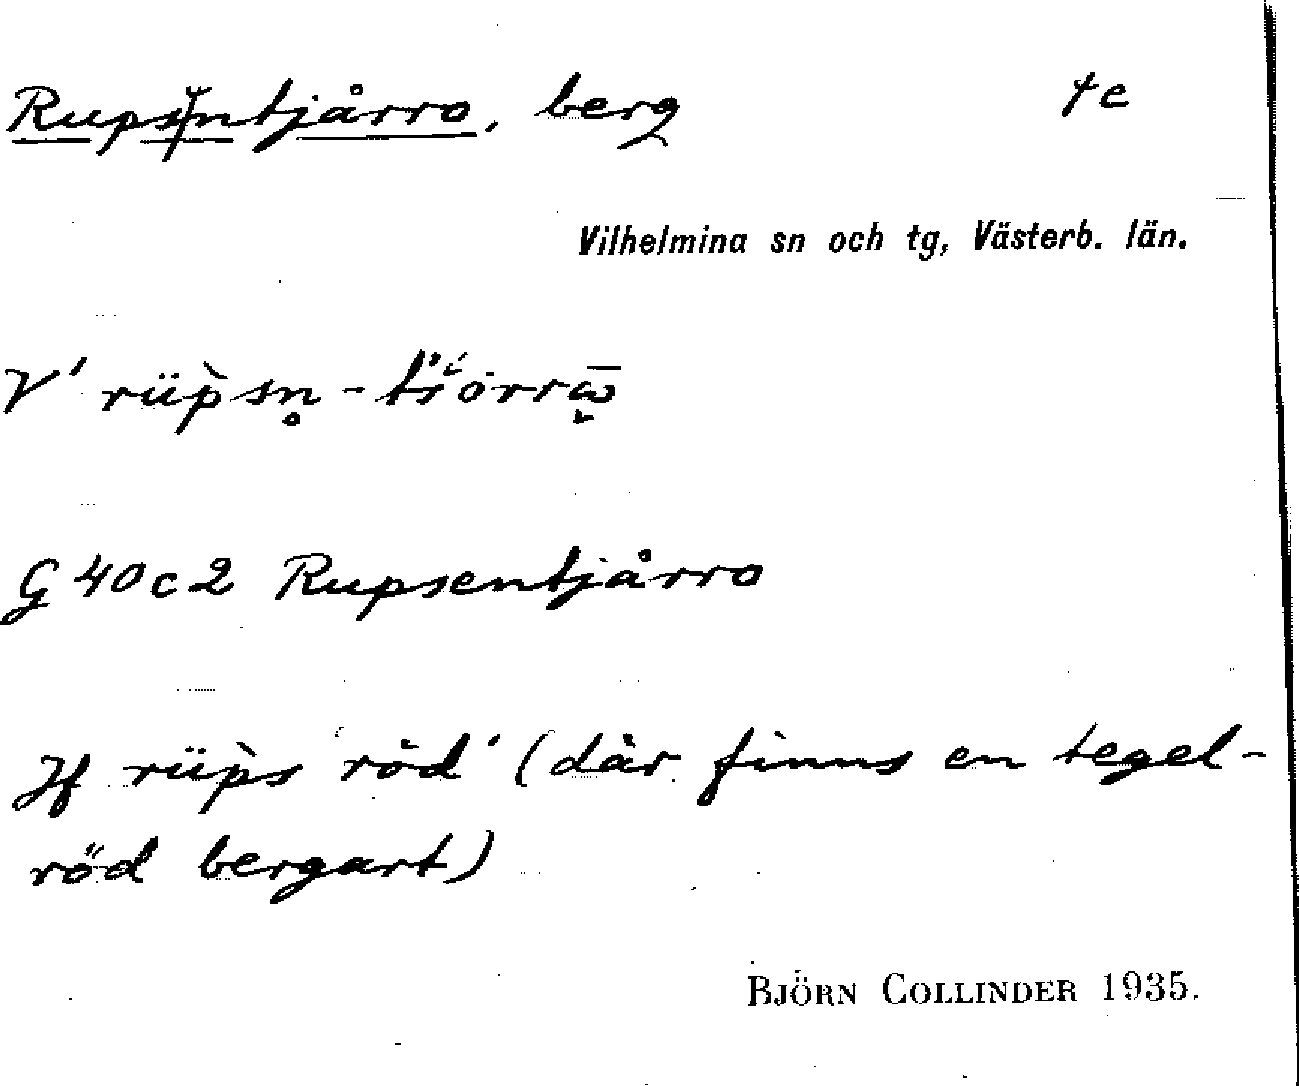 Rupsntjårro, berg 4e
Vilhelmina sn och tg, Västerb. län.
V' rüp̀sn̥ -
G 40 c 2 Rupsentjårro
Jf rüp̀s 'röd' (där finns en tegel-
röd bergart)
BJÖRN COLLINDER 1935.